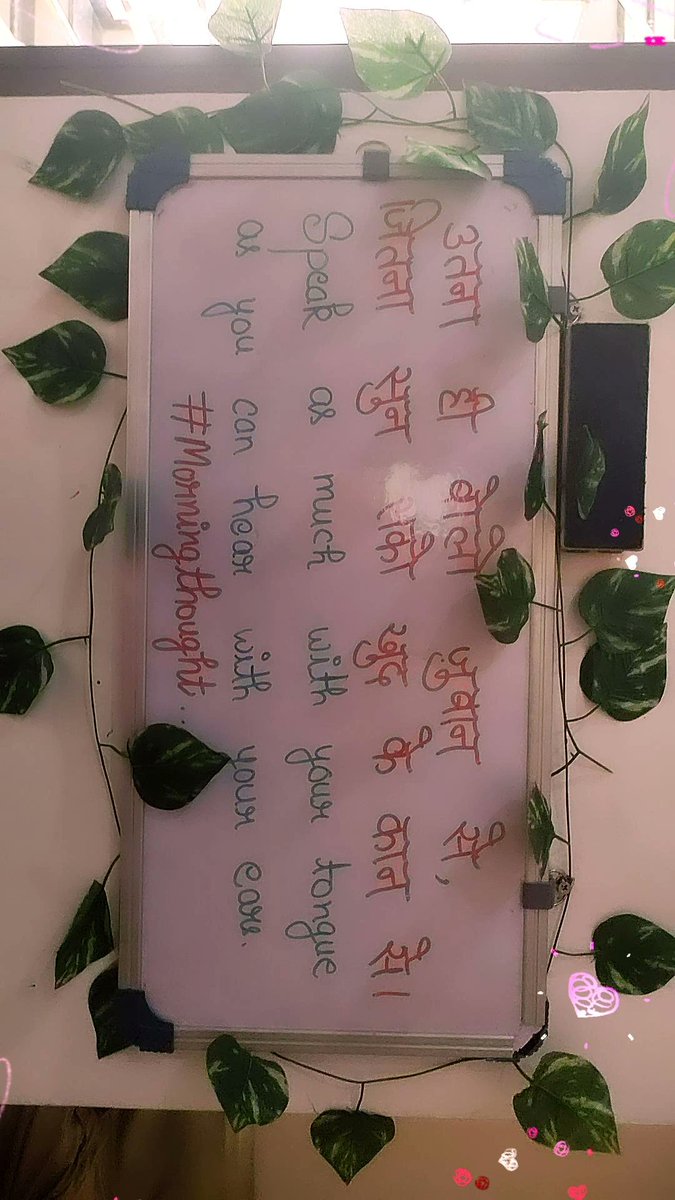 उतना ही बोलो जुबान से,
जितना सुन सको खुद के कान से।
Speak as much with your tongue
as you can hear with your ears.
#Morningthought...